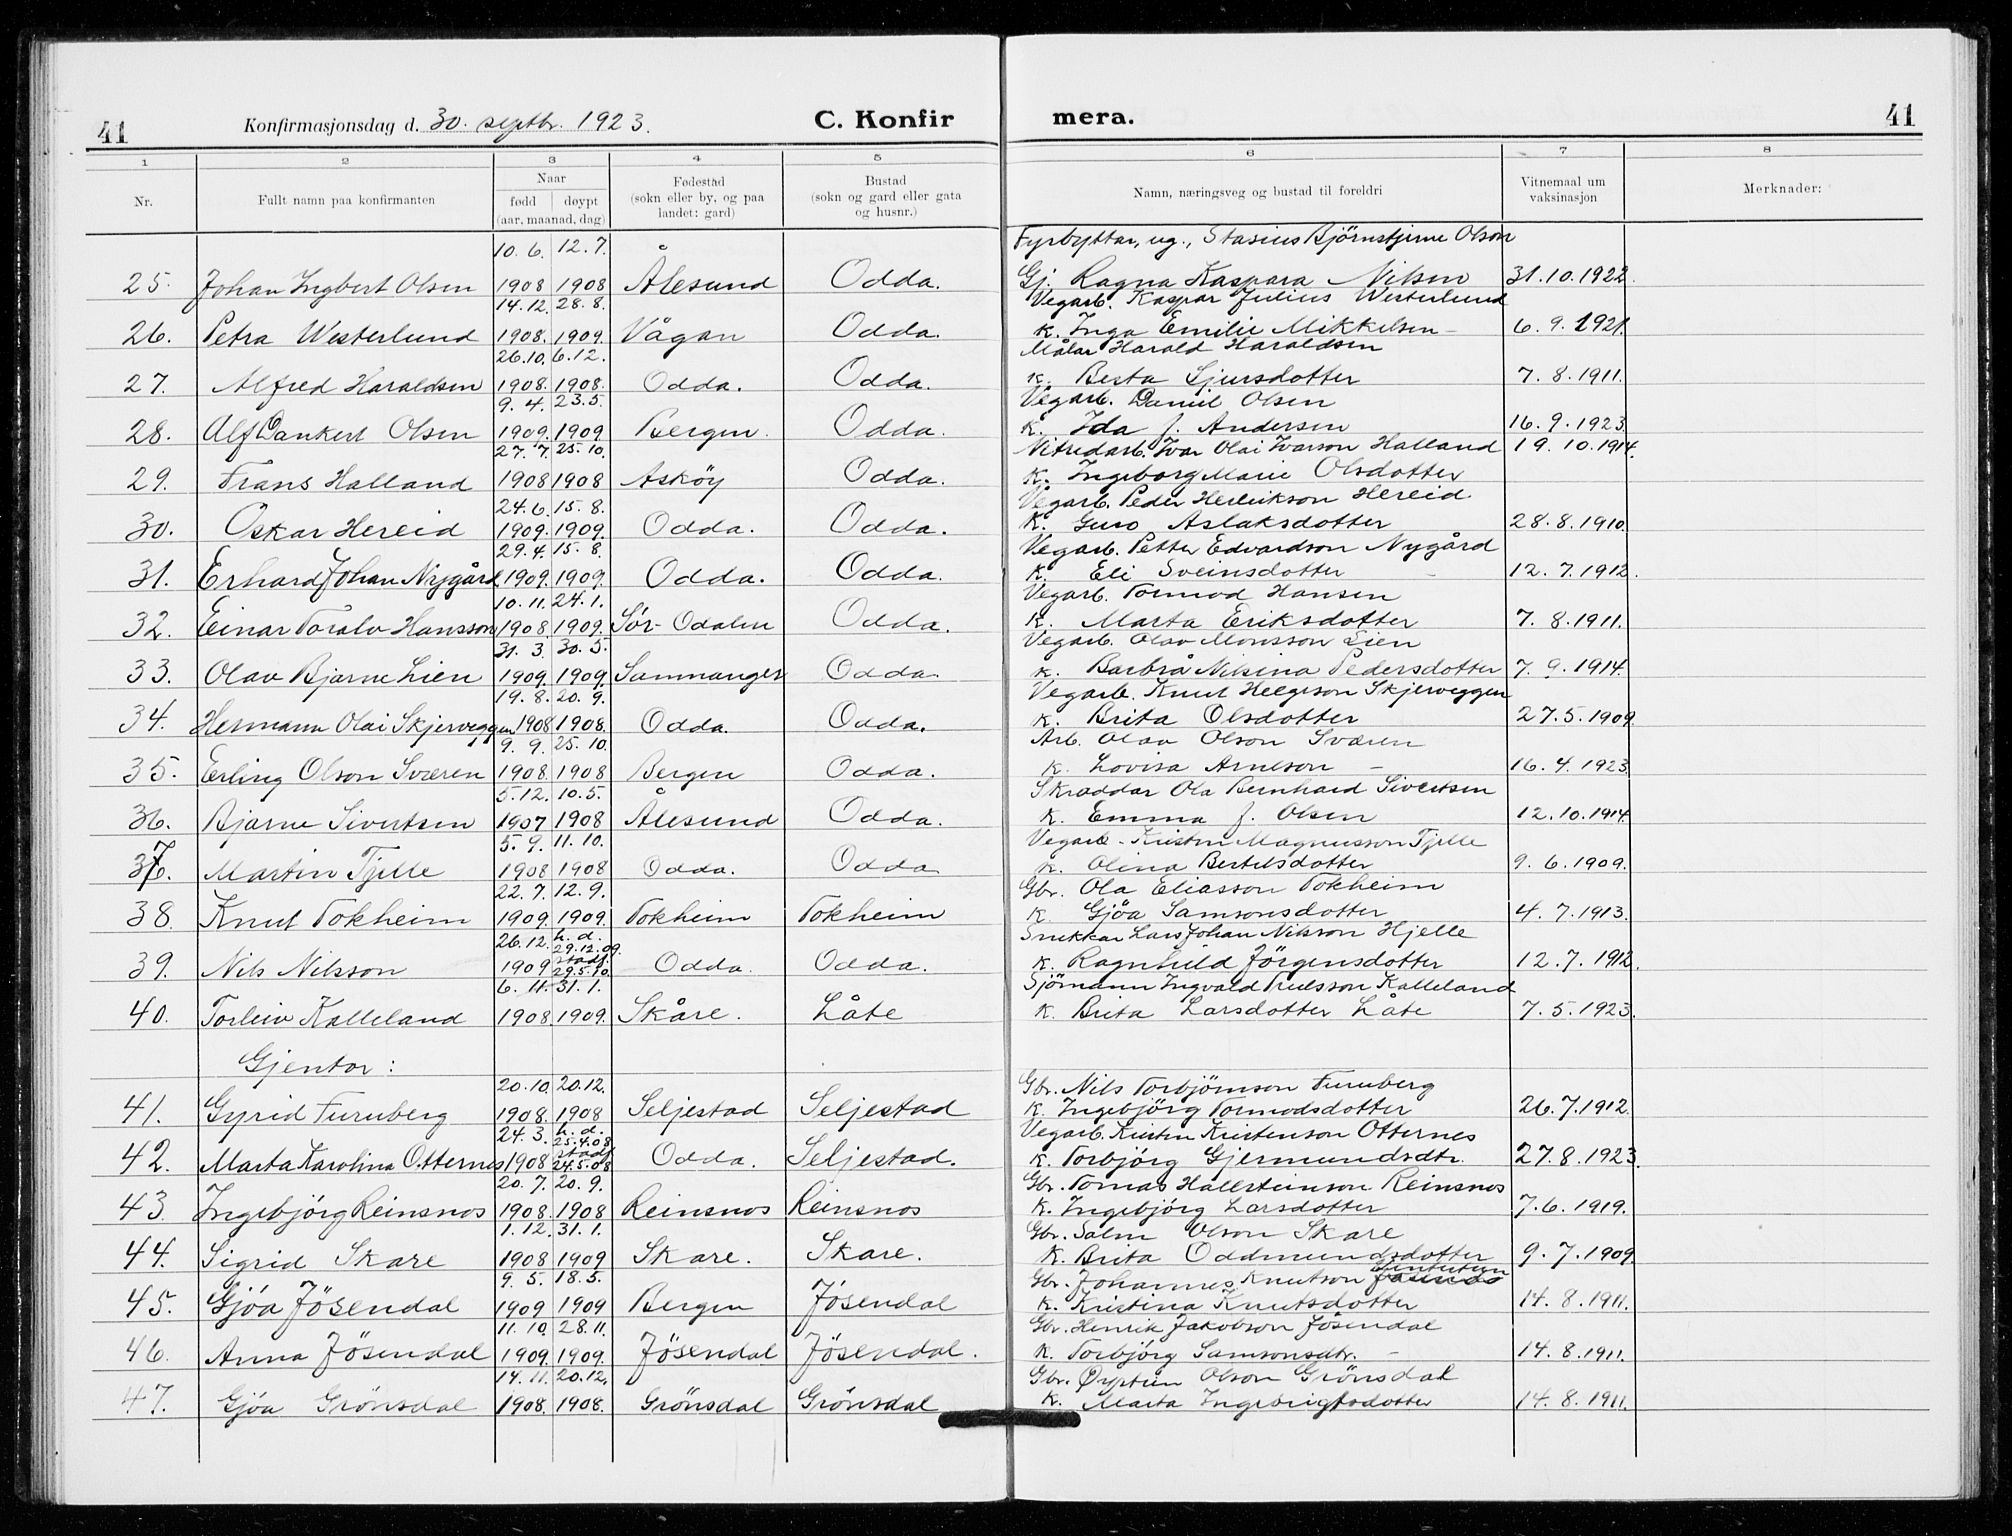 41 Konfirmasjonsdag d. 30. septbr. 1923. C. Konfir mera. 41
1 2 3 4 5 6 7 8
Nr. Fullt namn paa konfirmanten Naar fødd døypt (aar, maanad, dag) Fødestad (sokn eller by, og paa landet: gard) Bustad (sokn og gard eller gata og husnr.) Namn, næringsveg og bustad til foreldri Vitnemaal um vaksinasjon Merknader:
10.6. 12.7. Å Fyrbyttar, ug., Stasius Björnstjerne Olson
25. Johan Ingbert Olsen 1908 1908 Ålesund Odda. Gj. Ragna Kaspara Nilsen 31.10.1922.
14.12. 28.8. Vegarb. Kaspar Julius Westerlund
26. Petra Westerlund 1908. 1909. Vågan Odda. K. Inga Emilie Mikkelsen – 6.9.1921.
26.10. 6.12. Målar Harald Haraldsen
27. Alfred Haraldsen 1908. 1908. Odda. Odda. K. Berta Sjursdotter 7.8.1911.
9.4. 23.5. Vegarb. Daniel Olsen
28. Alf Dankert Olsen 1909. 1909 Bergen. Odda. K. Ida J. Andersen 16.9.1923.
27.7. 25.10. Nitredarb. Ivar Olai Ivarson Halland 19.10.1914.
29. Frans Halland 1908 1908 Asköy Odda. K. Ingeborg Marie Olsdotter
24.6. 15.8. Vegarb. Peder Henrikson Hereid.
30. Oskar Hereid 1909. 1909. Odda. Odda. K. Guro Aslaksdotter 28.8.1910.
29.4. 15.8. Vegarb. Petter Edvardson Nygård
31. Erhard Johan Nygård 1909. 1909. Odda. Odda. K. Eli Sveinsdotter – 12.7.1912.
10.11. 24.1. Vegarb. Tormod Hansen
32. Einar Toralv Hansson 1908. 1909. Sör-Odalen Odda. K. Marta Eriksdotter 7.8.1911.
31.3. 30.5. Vegarb. Olav Monsson Lien
33. Olav Bjarne Lien 1909. 1909. Samnanger Odda. K. Barbrå Nilsina Pedersdotter 7.9.1914.
19.8. 20.9. Vegarb. Knut Helgeson Skjerveggen
34. Hermann Olai Skjerveggen 1908 1908. Odda. Odda. K. Brita Olsdotter 27.5.1909.
9.9. 25.10. Arb. Olav Olson Sværen
35. Erling Olson Sværen 1908. 1908 Bergen Odda. K. Lovisa Arneson – 16.4.1923.
5.12. 10.5. Skraddar Ola Bernhard Sivertsen
36. Bjarne Sivertsen 1907 1908 Ålesund Odda. K. Emma J. Olsen 12.10.1914.
5.9. 11.10. Vegarb. Kristen Magnusson Tjelle
37. Martin Tjelle 1908 1908 Odda. Odda K. Olina Bertilsdotter 9.6.1909.
22.7. 12.9. Gbr. Ola Eliasson Tokheim
38. Knut Tokheim 1909. 1909. Tokheim Tokheim K. Gjöa Samsonsdotter 4.7.1913.
26.12. h.d. 29.12.09. Snikkar Lars Johan Nilsson Hjelle
39. Nils Nilsson 1909 stadf. 29.5.10. Odda. Odda. K. Ragnhild Jörgensdotter 12.7.1912.
6.11. 31.1. Sjömann Ingvald Trulsson Kalleland
40. Torleiv Kalleland 1908. 1909. Skåre. Låte K. Brita Larsdotter Låte 7.5.1923.
Gjentor:
20.10. 20.12. Gbr. Nils Torbjörnson Furuberg
41. Gyrid Furuberg 1908. 1908 Seljestad Seljestad K. Ingebjörg Tormodsdotter 26.7.1912.
24.3. h.d. 25.4.08 Vegarb. Kristen Kristenson Otternes
42. Marta Karolina Otternes 1908 stadf 24.5.08 Odda. Seljestad. K. Torbjörg Gjermundsdtr. 27.8.1923.
20.7. 20.9. Gbr. Tomas Hallsteinson Reinsnos
43. Ingebjörg Reinsnos 1908. 1908 Reinsnos Reinsnos K. Ingebjörg Larsdotter 7.6.1919.
1.12. 31.1. Gbr. Salm Olson Skare
44. Sigrid Skare 1908 1909 Skare. Skare. K. Brita Oddmundsdotter 9.7.1909.
9.5. 18.5. Gbr. Johannes Knutson
45. Gjöa Jösendal 1909 1909 Bergen Jösendal K. Kristina Knutsdotter 14.8.1911.
11.10. 28.11. Gbr. Henrik Jakobson Jösendal
46. Anna Jösendal 1909. 1909. Jösendal Jösendal. K. Torbjörg Samsonsdtr. – 14.8.1911.
14.11. 20.12. Gbr. Øystein Olson Grönsdal
47. Gjöa Grönsdal 1908. 1908. Grönsdal Grönsdal K. Marta Ingebrigtsdotter 14.8.1911.